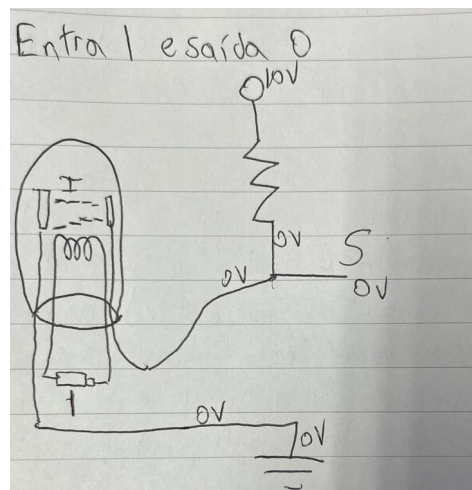 Entra 1 e saída 0
10V
I
0V
S
0V
0V
1
0V
0V